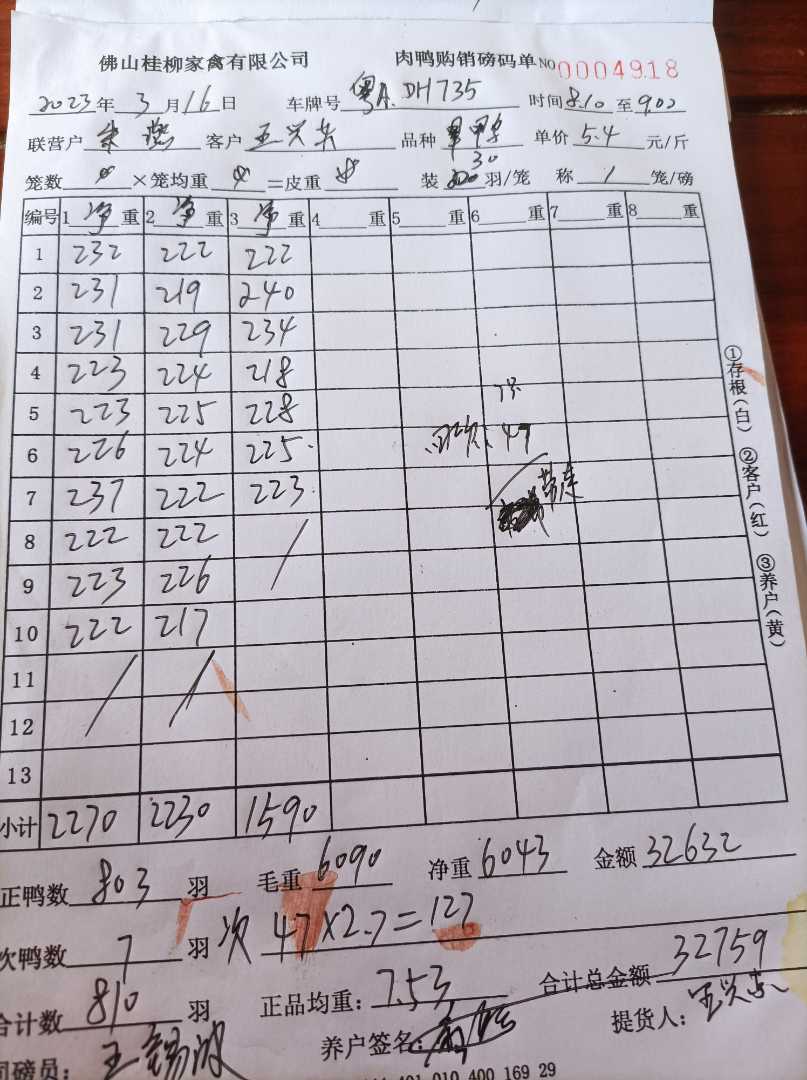 佛山桂柳家禽有限公司 肉鸭购销磅码单 NO 0004918
2023年 3月16日 车牌号 粤A.DH735 时间 8.10 至 9.02
联营户 客户 王兴东 品种 单价 5.4 元/斤
笼数 ×笼均重 =皮重 装 30 羽/笼 称 1 笼/磅
编号 1 净 重 2 净 重 3 净 重 4 重 5 重 6 重 7 重 8 重
1 232 222 222
2 231 219 240
3 231 229 234
4 223 224 218
5 223 225 228
6 226 224 225
47
7 237 222 223
8 222 222 /
9 223 226
10 222 217
11 / /
12
13
小计 2270 2230 1590
正鸭数 803 羽 毛重 6090 净重 6043 金额 32632
次鸭数 7 羽 次 47×2.7=127
合计数 810 羽 正品均重: 7.53 合计总金额 32759
司磅员: 王锡波 养户签名: 提货人: 王兴东
①存根(白) ②客户(红) ③养户(黄)
010 400 169 29